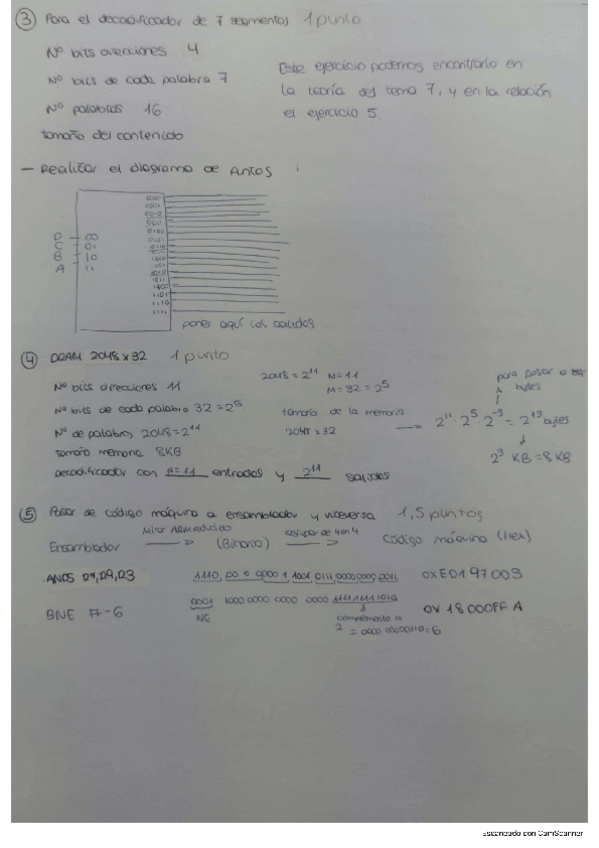 ③ Para el decodificador de 7 segmentos 1 punto
Nº bits direcciones 4
Nº bits de cada palabra 7
Nº palabras 16
tamaño del contenido
Este ejercicio podemos encontrarlo en
la teoría del tema 7, y en la relación
el ejercicio 5.
- Realizar el diagrama de puntos
D 00
C 01
B 10
A 11
0000
0001
0010
0011
0100
0101
0110
1000
1010
1011
1100
1101
1110
1111
poner aquí las salidas
④ DRAM 2048x32 1 punto
Nº bits direcciones 11
Nº bits de cada palabra 32=2⁵
Nº de palabras 2048=2¹¹
tamaño memoria 8KB
Decodificador con n=11 entradas y 2¹¹ salidas
2048=2¹¹ N=11
M=32=2⁵
tamaño de la memoria
2048x32
para pasar a
bytes
2¹¹·2⁵·2⁻³=2¹³ bytes
2³ KB=8KB
⑤ Pasar de código máquina a ensamblador y viceversa 1,5 puntos
Ensamblador Mirar ARM reducido (Binario) agrupar de 4 en 4 código máquina (Hex)
ANDS 07,09,03 1110,00 0 0000 1 1001 0111 0000 0000 0011 0xE0197003
BNE #-6 0001 1000 0000 0000 0000 111111111010 0x18000FFA
NE
complemento a
2 = 0000 00000110=6
Escaneado con CamScanner